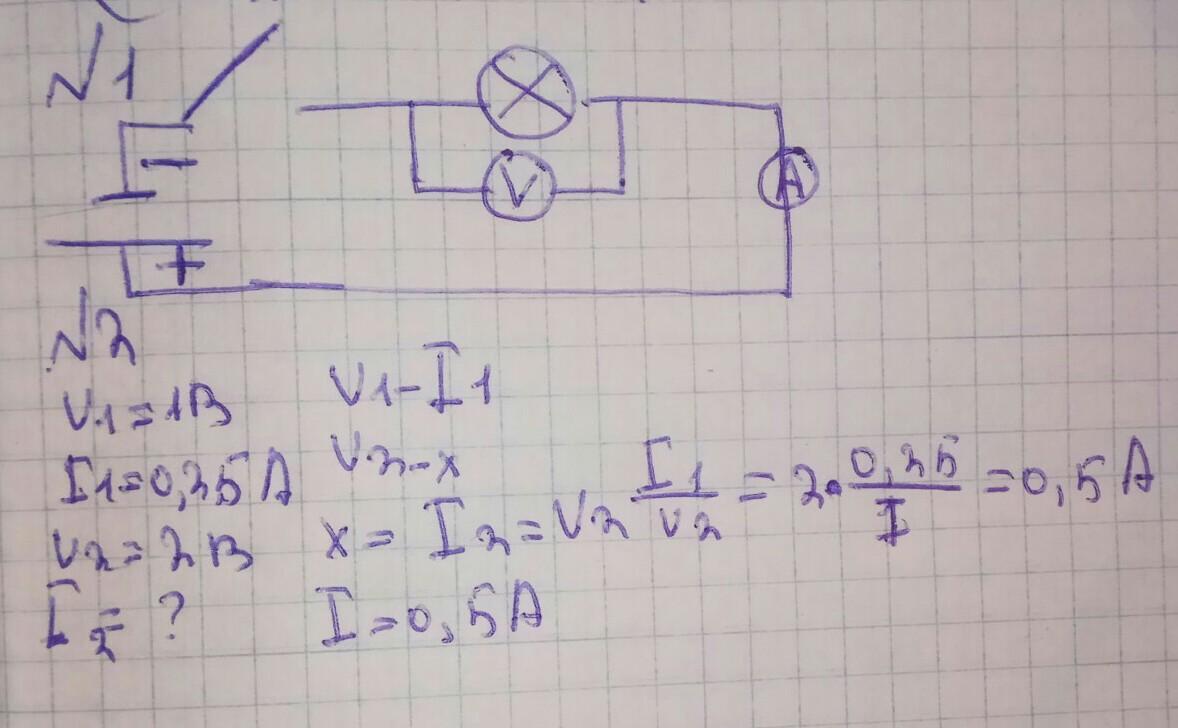 √1
V
A
− 
+
√2
V1=1В
I1=0,25А
V2=2В
I2=?
V1-I1
V2-x
x=I2=V2 I1/V2=2·0,25/I=0,5А
I=0,5А